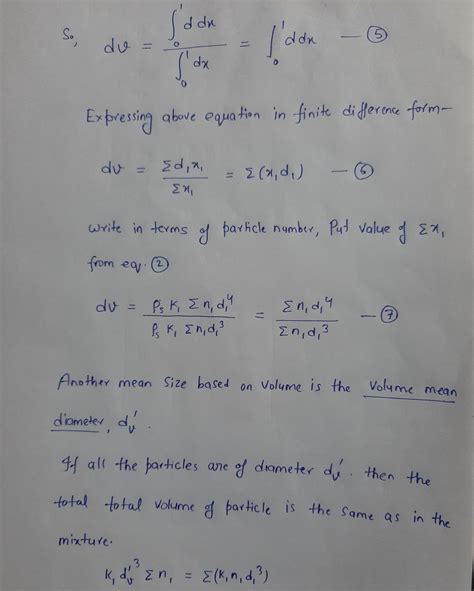 So, dv = ∫₀¹ d dx / ∫₀¹ dx = ∫₀¹ d dx — ⑤
Expressing above equation in finite difference form—
dv = Σd₁x₁ / Σx₁ = Σ(x₁d₁) — ⑥
write in terms of particle number, Put value of Σx₁
from eq. ②
dv = ρₛ K₁ Σn₁d₁⁴ / ρₛ K₁ Σn₁d₁³ = Σn₁d₁⁴ / Σn₁d₁³ — ⑦
Another mean size based on volume is the volume mean
diameter, dᵥ′.
If all the particles are of diameter dᵥ′. then the
total total volume of particle is the same as in the
mixture.
K₁ dᵥ′³ Σn₁ = Σ(K₁n₁d₁³)